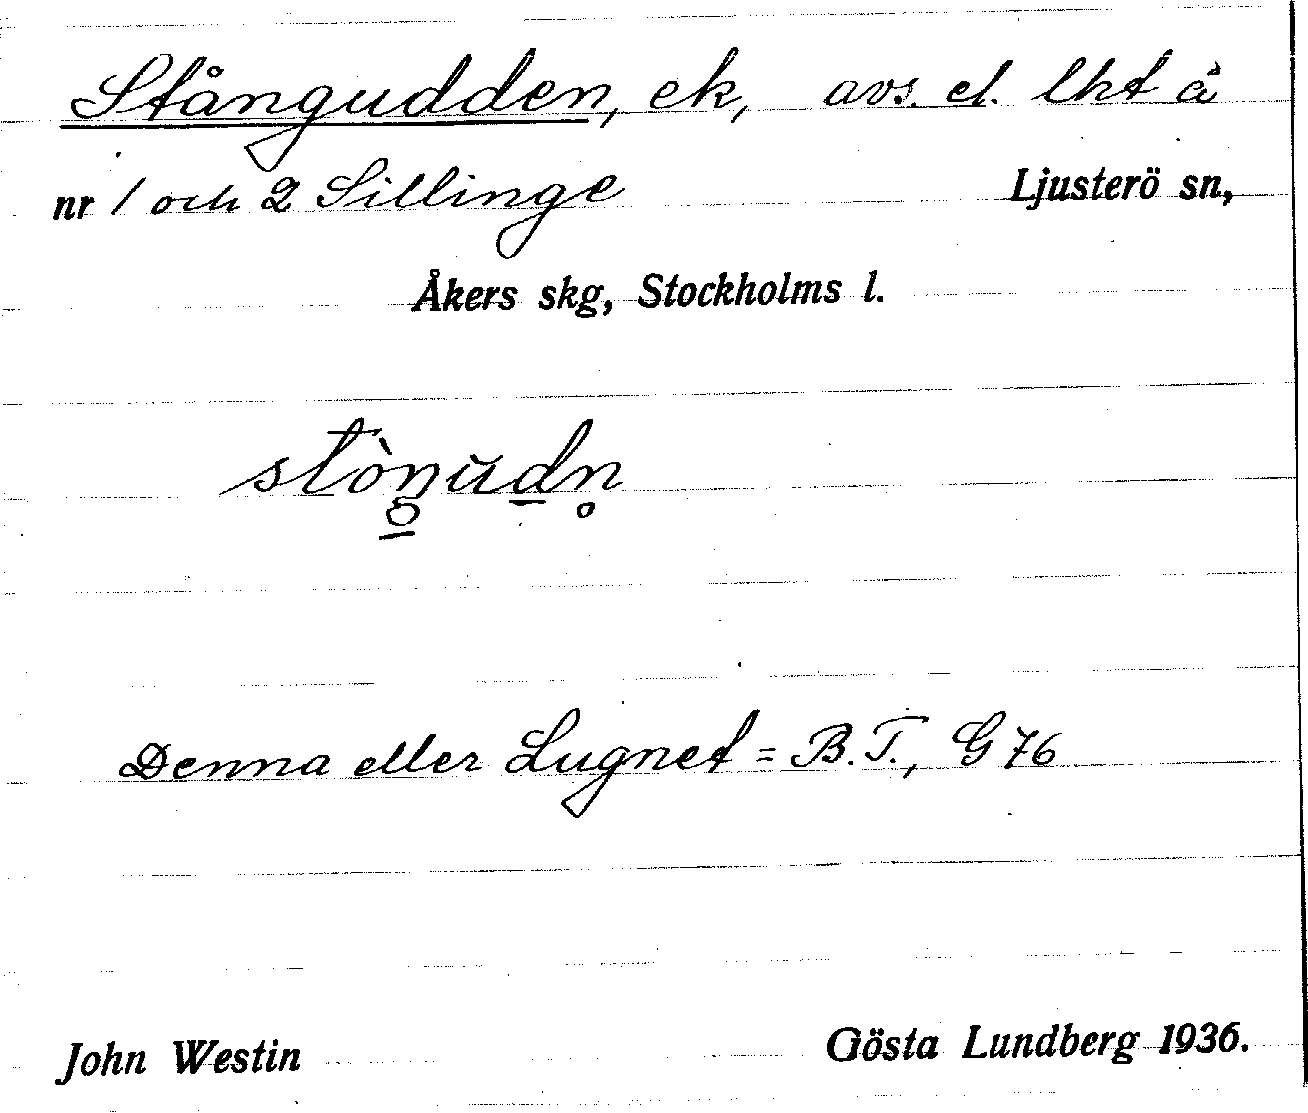 Stångudden, ek, avs. el. lht å
nr 1 och 2 Sillinge Ljusterö sn,
Åkers skg, Stockholms l.
Denna eller Lugnet = B.T., G 76
John Westin Gösta Lundberg 1936.